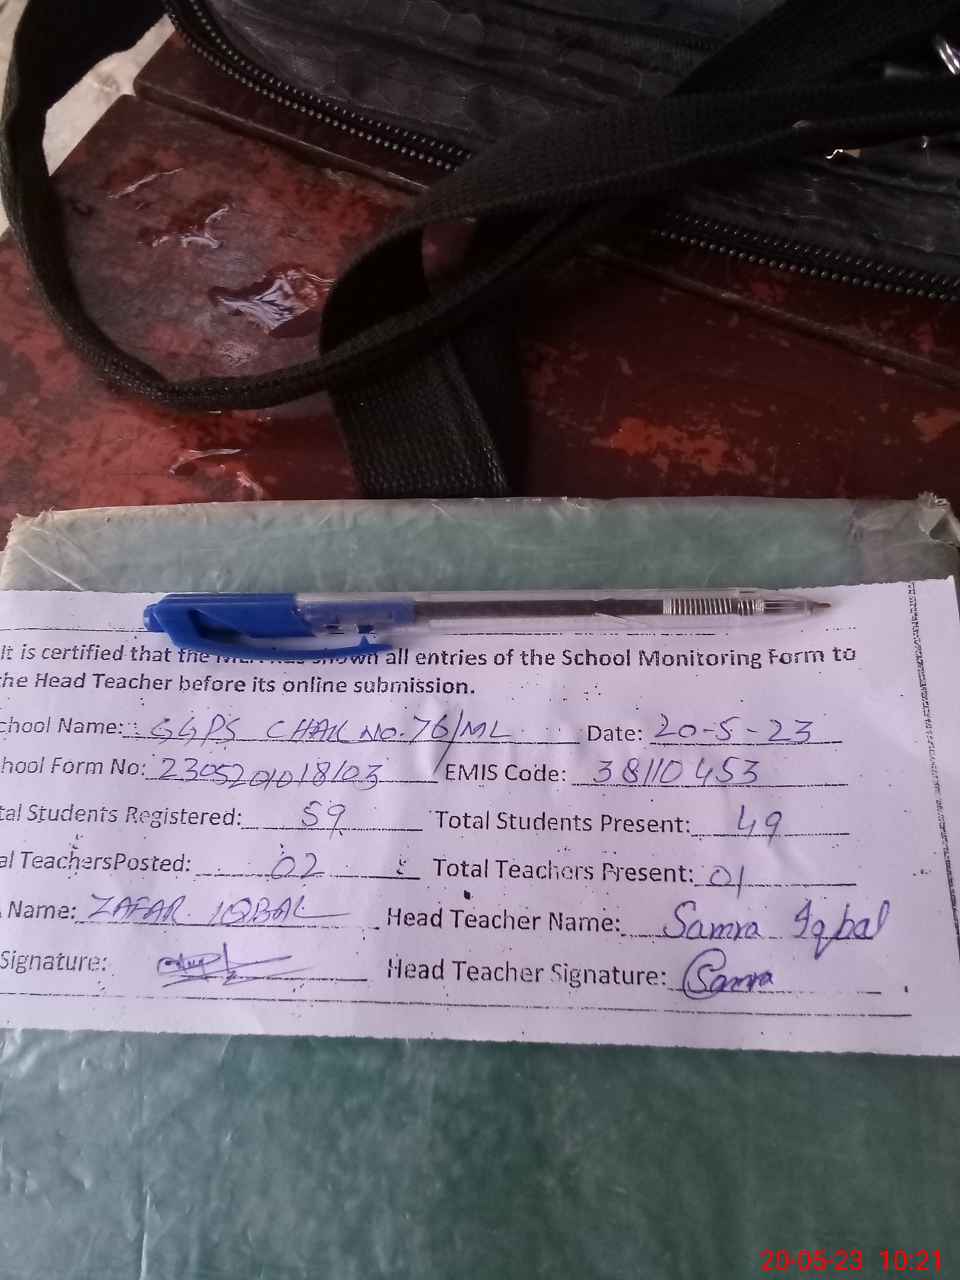 It is certified that the MEA has shown all entries of the School Monitoring Form to
the Head Teacher before its online submission.
chool Name: GGPS CHAK NO.76/ML Date: 20-5-23
hool Form No: 2305201018103 EMIS Code: 38110453
tal Students Registered: 59 Total Students Present: 49
al TeachersPosted: 02 Total Teachers Present: 01
Name: ZAFAR IQBAL Head Teacher Name: Samra Iqbal
Signature: Head Teacher Signature: Samra
20-05-23 10:21